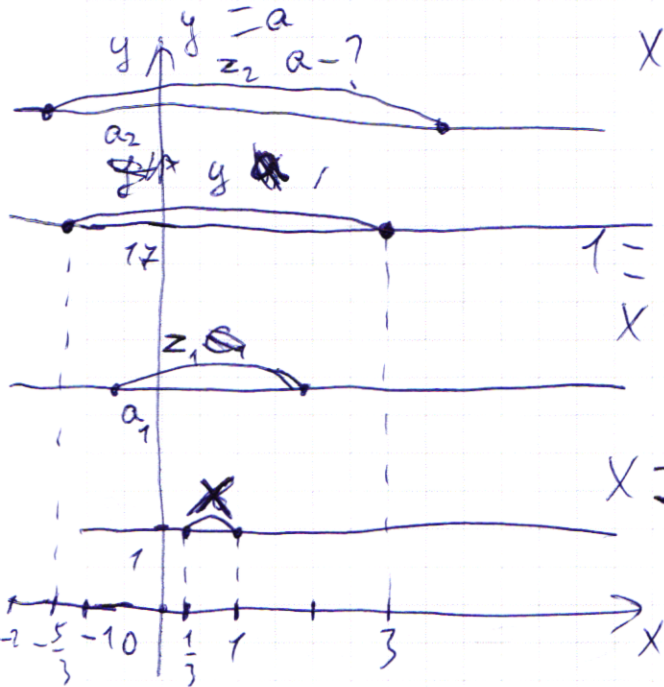 y = a
y z₂ a - ? X
a₂
y
17 1 =
X
z₁
a₁
X =
X
1
-2 -5/3 -1 0 1/3 1 3 X